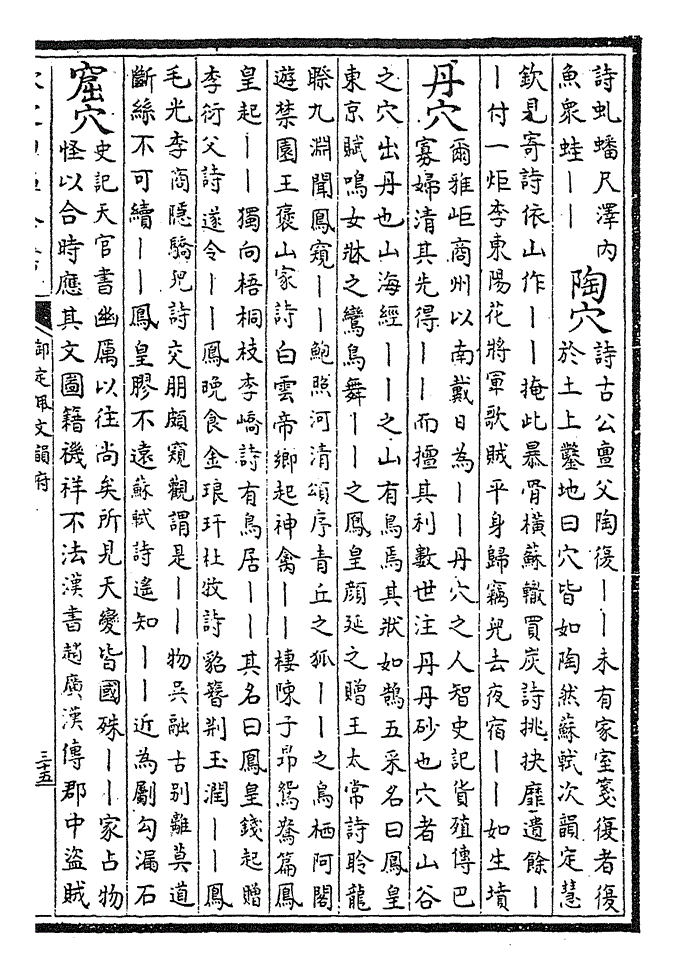 詩虬蟠尺澤內
魚衆蛙丨丨
陶穴
詩古公亶父陶復丨丨未有家室箋復者復
於土上鑿地曰穴皆如陶然蘇軾次韻定慧
欽見寄詩依山作丨丨掩此暴骨橫蘇轍買炭詩挑抉靡遺餘丨
丨付一炬李東陽花將軍歌賊平身歸竊兇去夜宿丨丨如生墳
丹穴
爾雅岠商州以南戴日為丨丨丹穴之人智史記貨殖傳巴
寡婦清其先得丨丨而擅其利數世注丹丹砂也穴者山谷
之穴出丹也山海經丨丨之山有鳥焉其狀如鵲五采名曰鳳皇
東京賦鳴女牀之鸞鳥舞丨丨之鳳皇顔延之贈王太常詩聆龍
睽九淵聞鳳窺丨丨鮑照河清頌序青丘之狐丨丨之鳥栖阿閣
遊禁園王褒山家詩白雲帝鄉起神禽丨丨棲陳子昻鴛鴦篇鳳
皇起丨丨獨向梧桐枝李嶠詩有鳥居丨丨其名曰鳳皇錢起贈
李衍父詩遂令丨丨鳳晚食金琅玕杜牧詩貂簪荆玉潤丨丨鳳
毛光李商隱驕兒詩交朋頗窺觀謂是丨丨物吳融古别離莫道
斷絲不可續丨丨鳳皇膠不遠蘇軾詩遙知丨丨近為斸勾漏石
窟穴
史記天官書幽厲以往尚矣所見天變皆國殊丨丨家占物
怪以合時應其文圖籍禨祥不法漢書趙廣漢傳郡中盜賊
御定佩文韻府
三十五